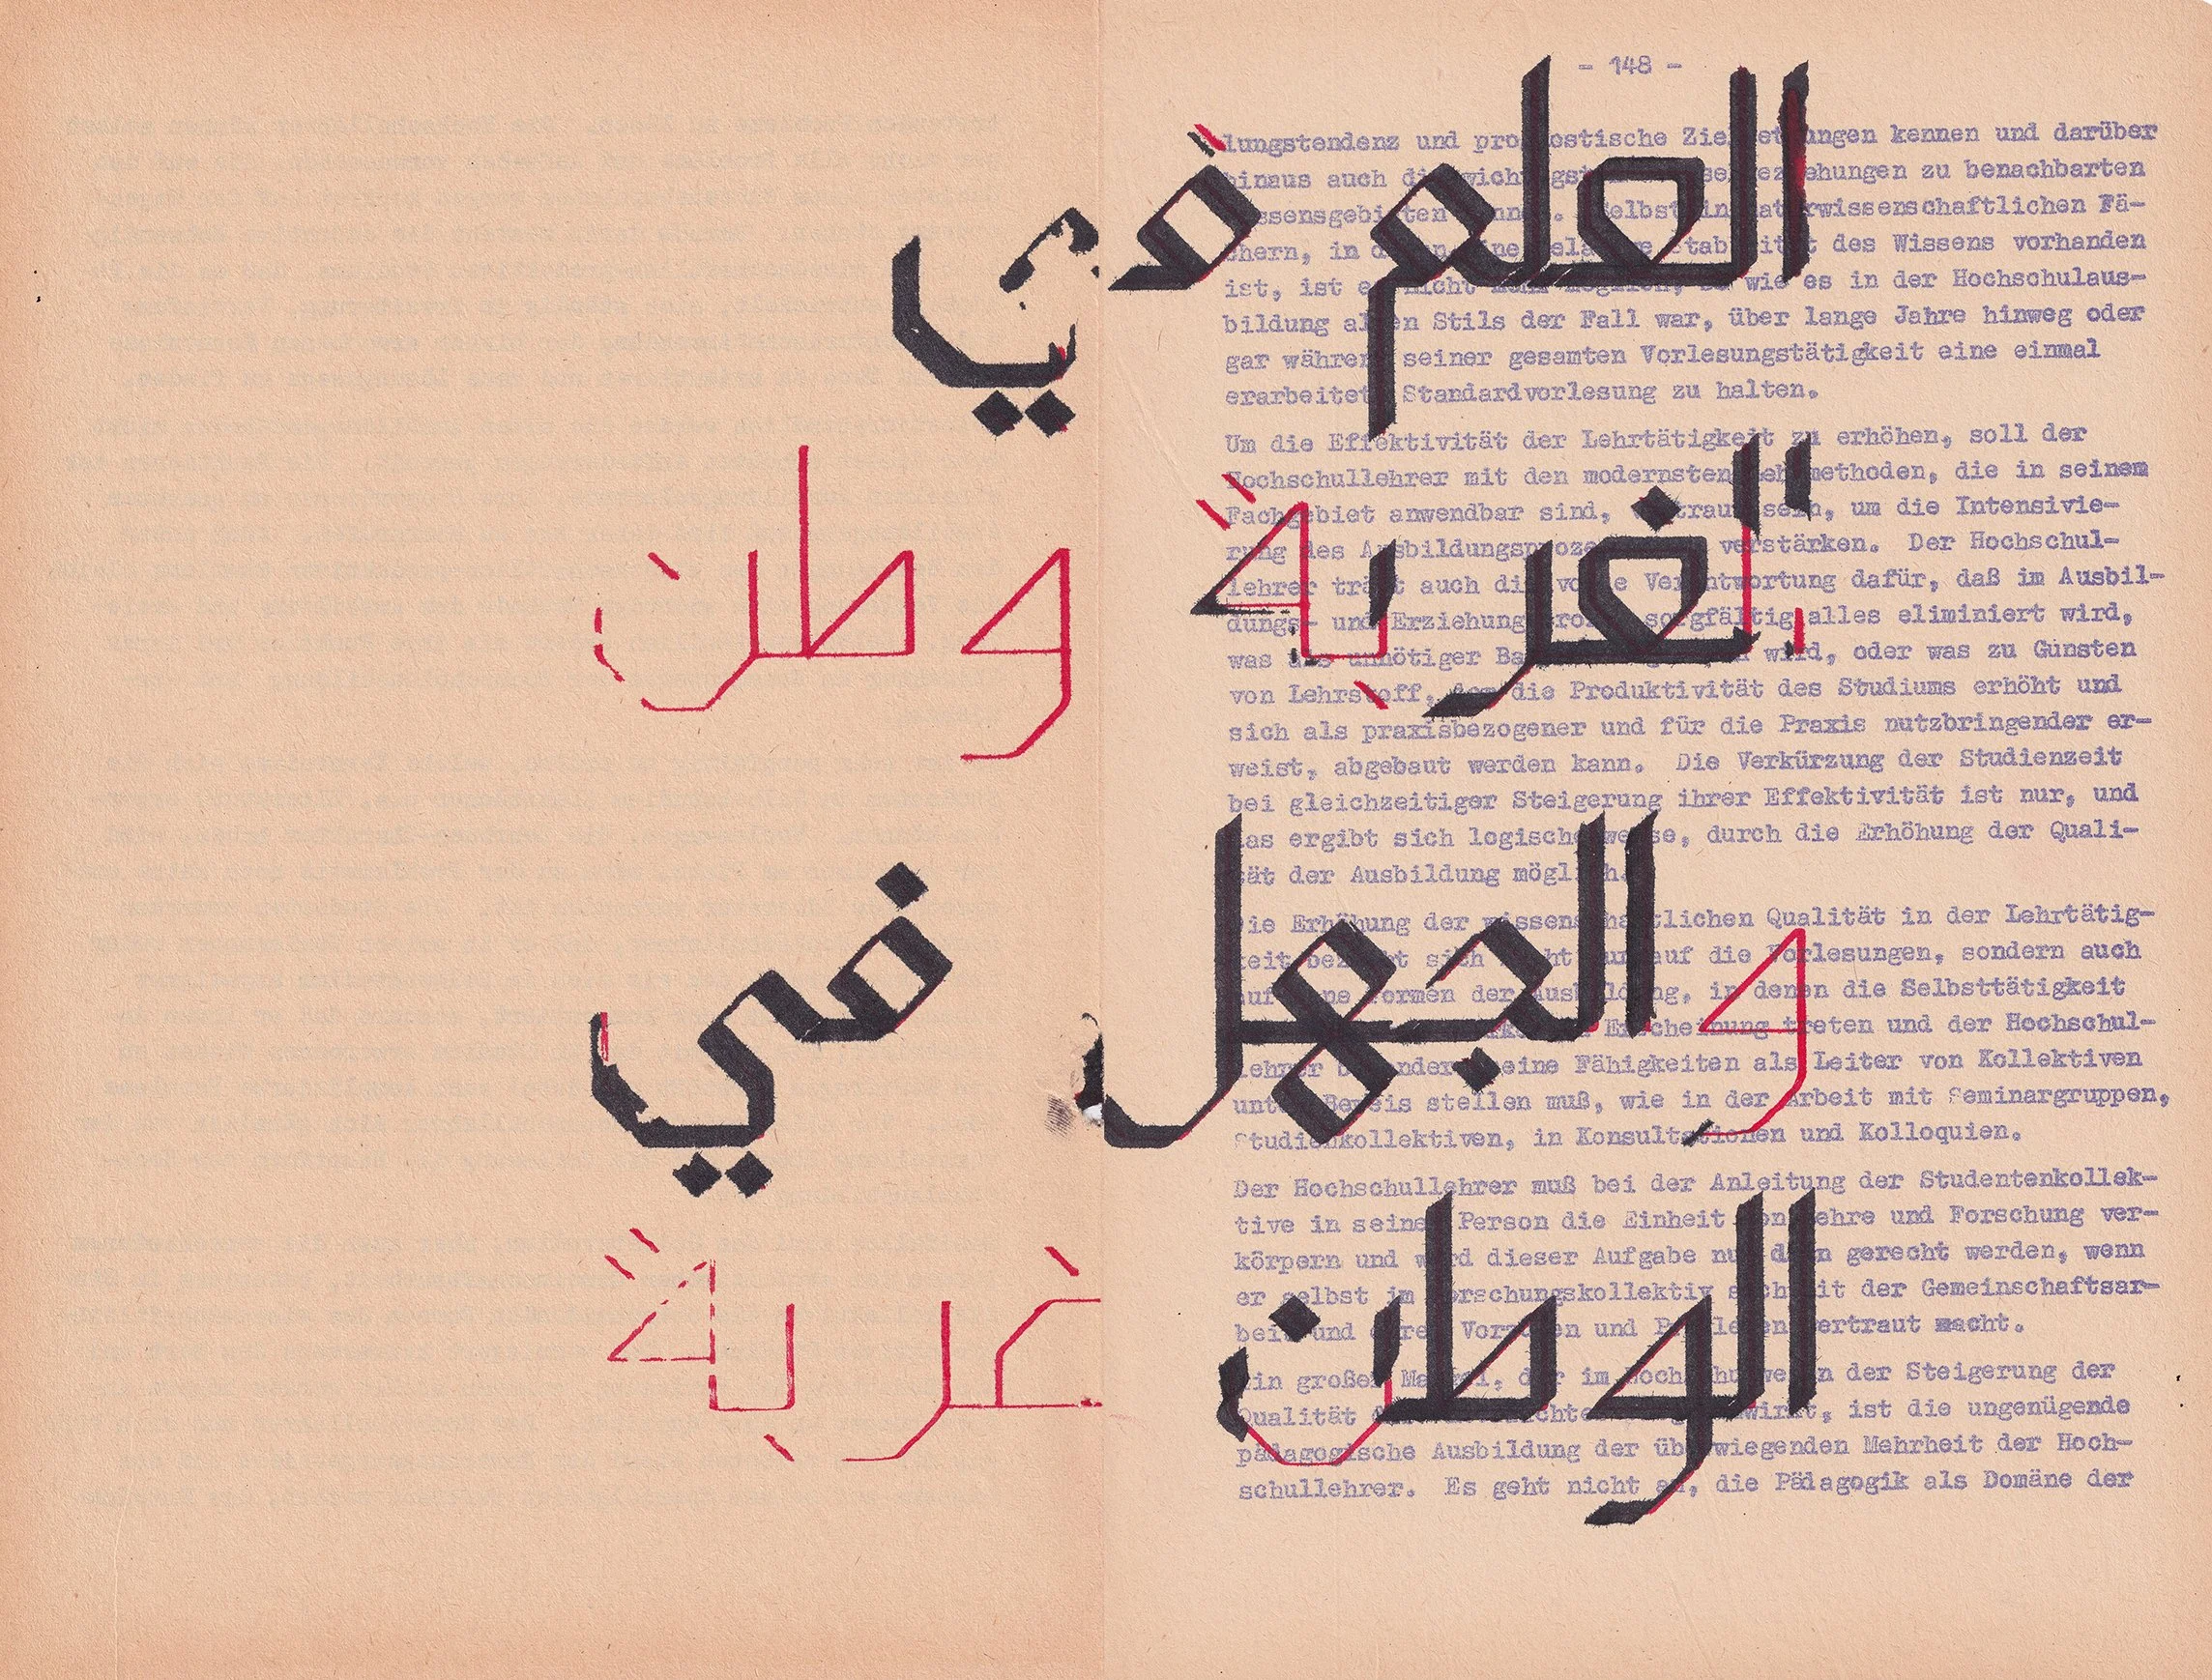 العلم في
الغربة وطن
والجهل في
الوطن غربة
- 148 -
lungstendenz und prognostische Zielsetzungen kennen und darüber
hinaus auch die wichtigsten Wechselbeziehungen zu benachbarten
Wissensgebieten kennen. Selbst in naturwissenschaftlichen Fä-
chern, in denen eine relative Stabilität des Wissens vorhanden
ist, ist es nicht mehr möglich, so wie es in der Hochschulaus-
bildung alten Stils der Fall war, über lange Jahre hinweg oder
gar während seiner gesamten Vorlesungstätigkeit eine einmal
erarbeitete Standardvorlesung zu halten.
Um die Effektivität der Lehrtätigkeit zu erhöhen, soll der
Hochschullehrer mit den modernsten Lehrmethoden, die in seinem
Fachgebiet anwendbar sind, vertraut sein, um die Intensivie-
rung des Ausbildungsprozesses zu verstärken. Der Hochschul-
lehrer trägt auch die volle Verantwortung dafür, daß im Ausbil-
dungs- und Erziehungsprozeß sorgfältig alles eliminiert wird,
was als unnötiger Ballast wird, oder was zu Gunsten
von Lehrstoff, der die Produktivität des Studiums erhöht und
sich als praxisbezogener und für die Praxis nutzbringender er-
weist, abgebaut werden kann. Die Verkürzung der Studienzeit
bei gleichzeitiger Steigerung ihrer Effektivität ist nur, und
das ergibt sich logischerweise, durch die Erhöhung der Quali-
tät der Ausbildung möglich.
Die Erhöhung der wissenschaftlichen Qualität in der Lehrtätig-
keit bezieht sich nicht nur auf die Vorlesungen, sondern auch
auf jene Formen der Ausbildung, in denen die Selbsttätigkeit
Erscheinung treten und der Hochschul-
lehrer besonders seine Fähigkeiten als Leiter von Kollektiven
unter Beweis stellen muß, wie in der Arbeit mit Seminargruppen,
Studienkollektiven, in Konsultationen und Kolloquien.
Der Hochschullehrer muß bei der Anleitung der Studentenkollek-
tive in seiner Person die Einheit von Lehre und Forschung ver-
körpern und wird dieser Aufgabe nur dann gerecht werden, wenn
er selbst im Forschungskollektiv sich mit der Gemeinschaftsar-
beit und ihren Vorzügen und Problemen vertraut macht.
Ein großer Mangel, der im Hochschulwesen der Steigerung der
Qualität ist die ungenügende
pädagogische Ausbildung der überwiegenden Mehrheit der Hoch-
schullehrer. Es geht nicht an, die Pädagogik als Domäne der